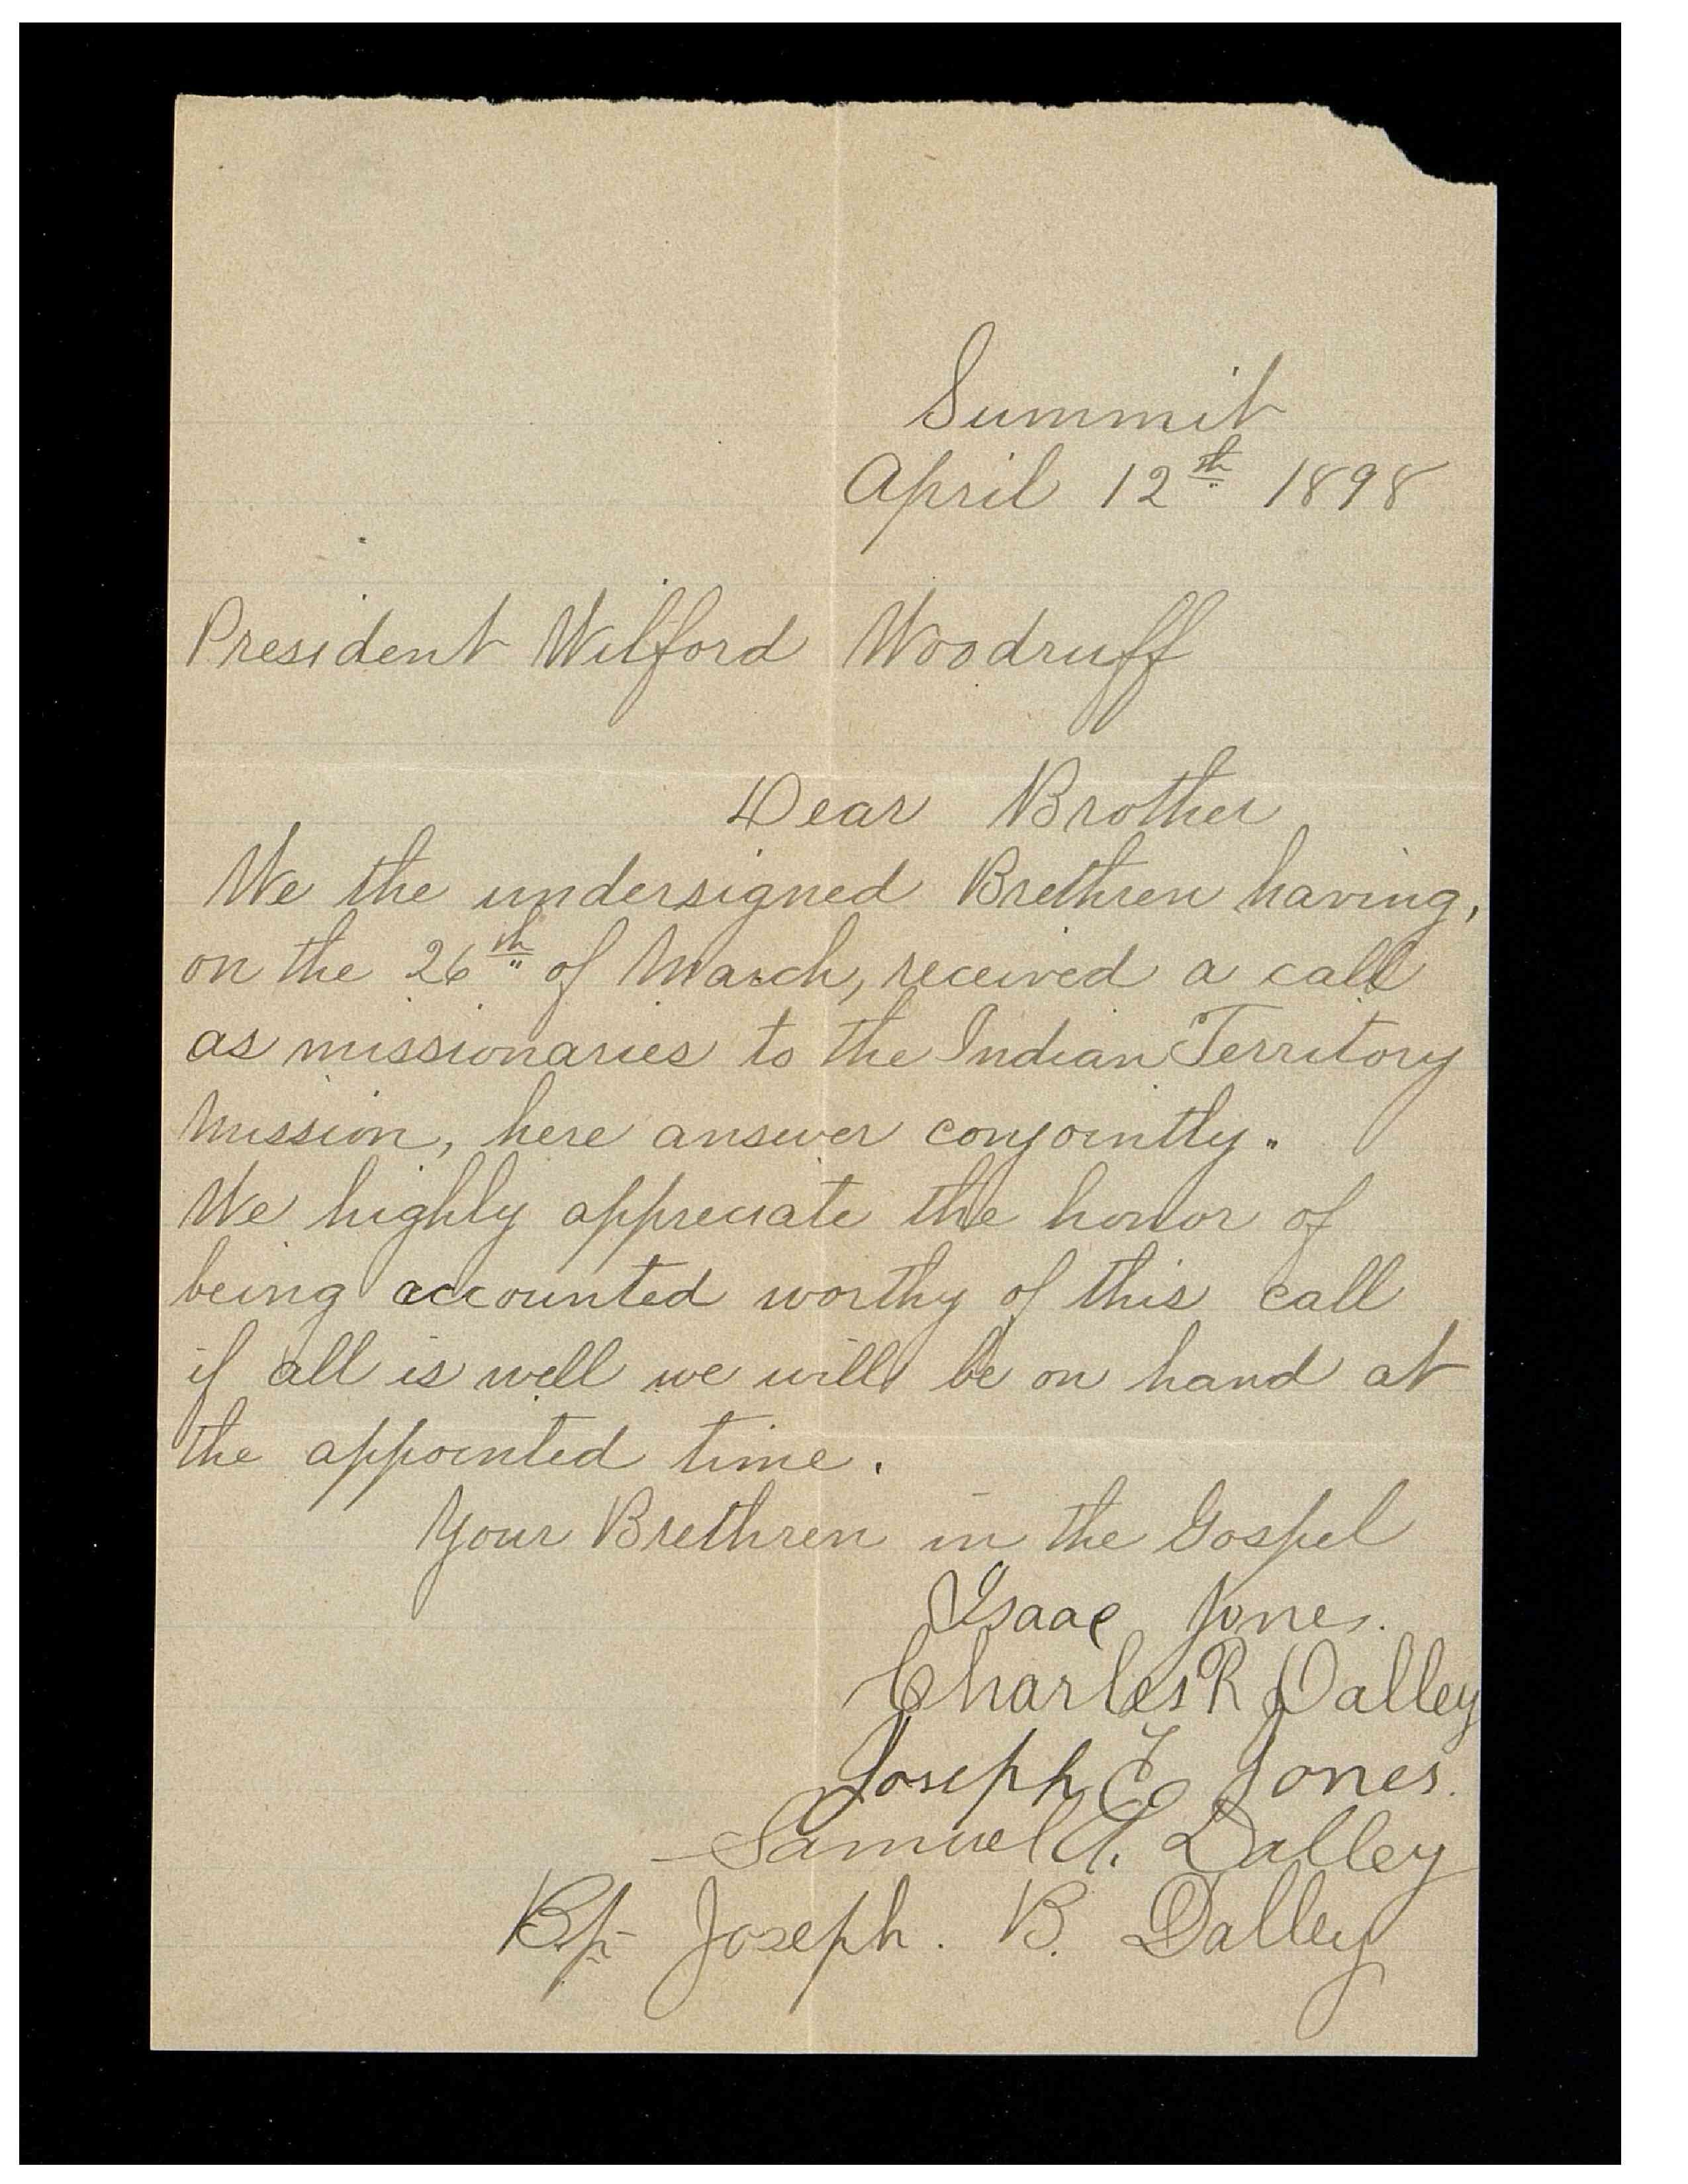 Summit
April 12th 1898
President Wilford Woodruff
Dear Brother
We the undersigned Brethren having,
on the 26th of March, received a call
as missionaries to the Indian Territory
Mission, here answer conjointly.
We highly appreciate the honor of
being accounted worthy of this call
if all is well we will be on hand at
the appointed time.
Your Brethren in the Gospel
Isaac Jones.
Charles R Dalley
Joseph E Jones.
Samuel A. Dalley
Bp Joseph. B. Dalley